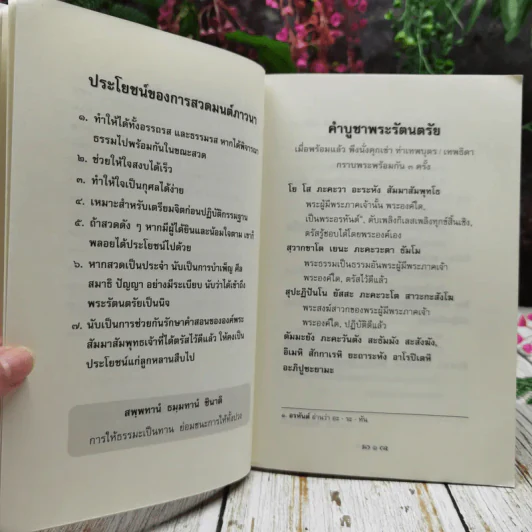 ประโยชน์ของการสวดมนต์ภาวนา
๑. ทำให้ได้ทั้งอรรถรส และธรรมรส หากได้พิจารณา
ธรรมไปพร้อมกันในขณะสวด
๒. ช่วยให้ใจสงบได้เร็ว
๓. ทำให้ใจเป็นกุศลได้ง่าย
๔. เหมาะสำหรับเตรียมจิตก่อนปฏิบัติกรรมฐาน
๕. ถ้าสวดดัง ๆ หากมีผู้ได้ยินและน้อมใจตาม เขาก็
พลอยได้ประโยชน์ไปด้วย
๖. หากสวดเป็นประจำ นับเป็นการบำเพ็ญ ศีล
สมาธิ ปัญญา อย่างมีระเบียบ นับว่าได้เข้าถึง
พระรัตนตรัยเป็นนิจ
๗. นับเป็นการช่วยกันรักษาคำสอนขององค์พระ
สัมมาสัมพุทธเจ้าที่ได้ตรัสไว้ดีแล้ว ให้คงเป็น
ประโยชน์แก่ลูกหลานสืบไป
สพฺพทานํ ธมฺมทานํ ชินาติ
การให้ธรรมะเป็นทาน ย่อมชนะการให้ทั้งปวง
คำบูชาพระรัตนตรัย
เมื่อพร้อมแล้ว พึงนั่งคุกเข่า ท่าเทพบุตร / เทพธิดา
กราบพระพร้อมกัน ๓ ครั้ง
โย โส ภะคะวา อะระหัง สัมมาสัมพุทโธ
พระผู้มีพระภาคเจ้านั้น พระองค์ใด,
เป็นพระอรหันต์๑, ดับเพลิงกิเลสเพลิงทุกข์สิ้นเชิง,
ตรัสรู้ชอบได้โดยพระองค์เอง
สฺวากขาโต เยนะ ภะคะวะตา ธัมโม
พระธรรมเป็นธรรมอันพระผู้มีพระภาคเจ้า
พระองค์ใด, ตรัสไว้ดีแล้ว
สุปะฏิปันโน ยัสสะ ภะคะวะโต สาวะกะสังโฆ
พระสงฆ์สาวกของพระผู้มีพระภาคเจ้า
พระองค์ใด, ปฏิบัติดีแล้ว
ตัมมะยัง ภะคะวันตัง สะธัมมัง สะสังฆัง,
อิเมหิ สักกาเรหิ ยะถาระหัง อาโรปิเตหิ
อะภิปูชะยามะ
๑ อรหันต์ อ่านว่า ออ - ระ - หัน